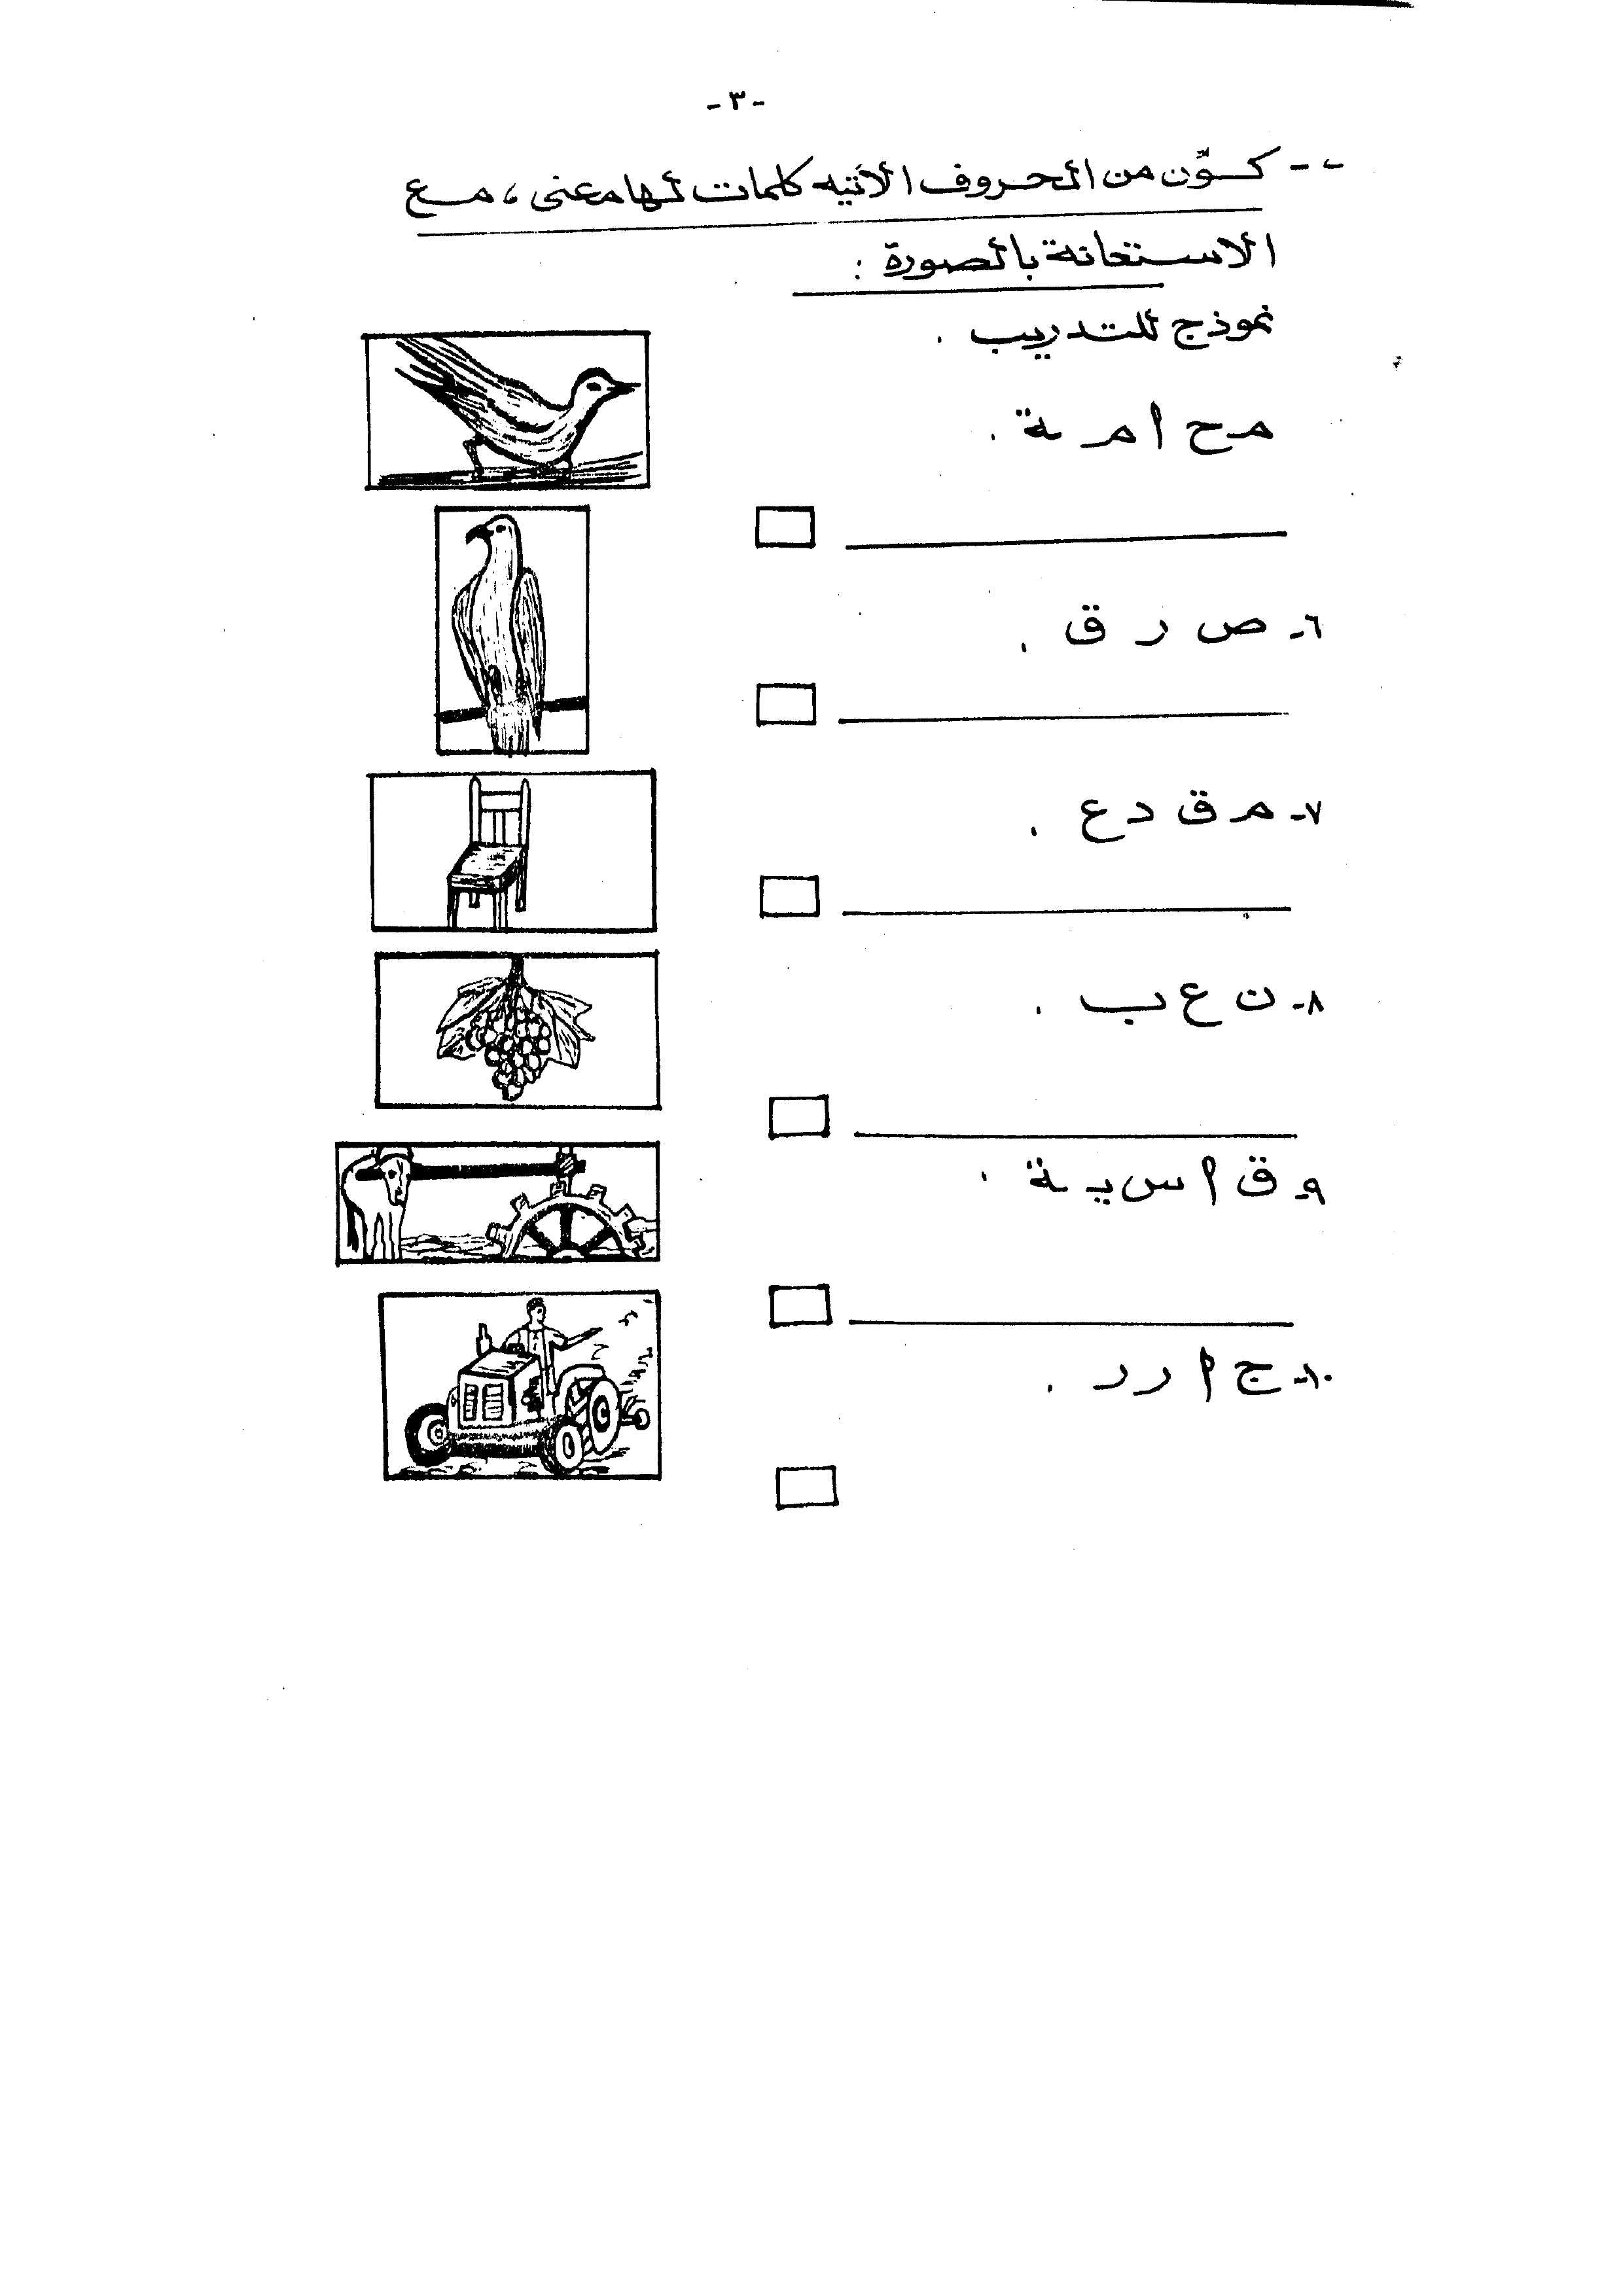 -٣-
ب- كوِّن من الحروف الأتيه كلمات لها معنى ، مع
الاستعانة بالصورة :
نموذج للتدريب .
م ح ا م ة .
٦- ص ر ق .
٧- م ق د ع .
٨- ن ع ب .
٩- ق ا س ي ة .
١٠- ج ا ر ر .